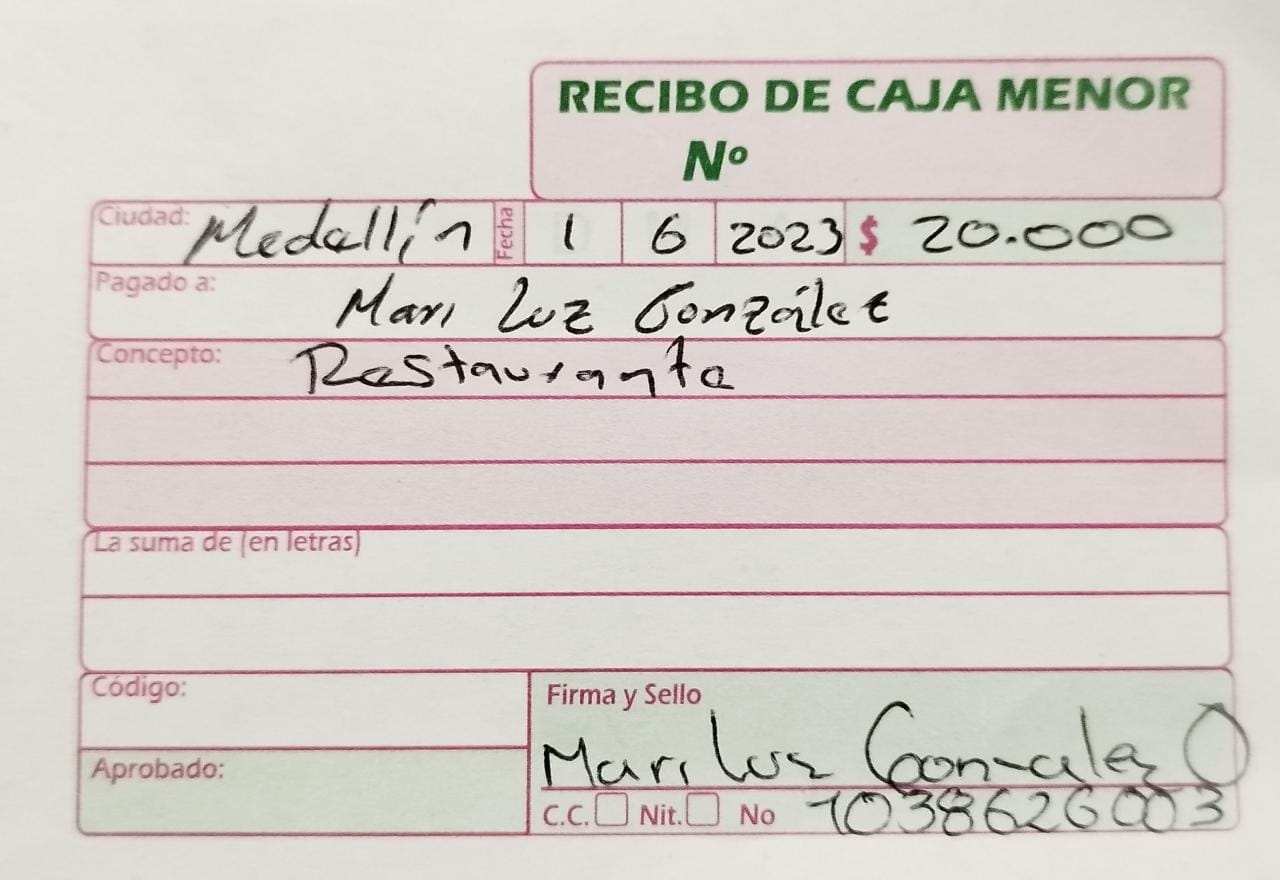 RECIBO DE CAJA MENOR
Nº
Ciudad: Medellín Fecha 1 6 2023 $ 20.000
Pagado a: Mari Luz González
Concepto: Restaurante
La suma de (en letras)
Código:
Firma y Sello
Mari Luz Gonzalez O
Aprobado:
C.C. Nit. No 1038626003